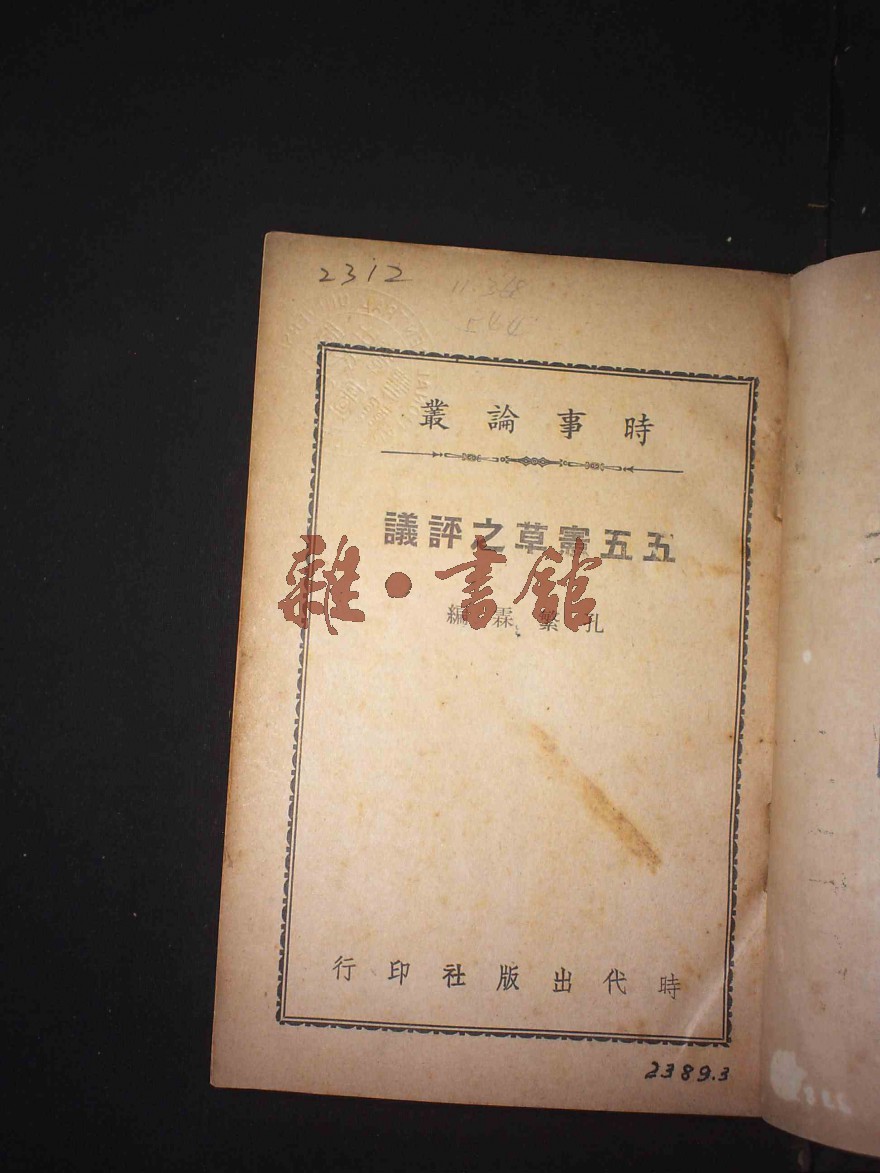 2312
時事論叢
五五憲草之評議
雜·書館
孔繁霖編
時代出版社印行
2389.3